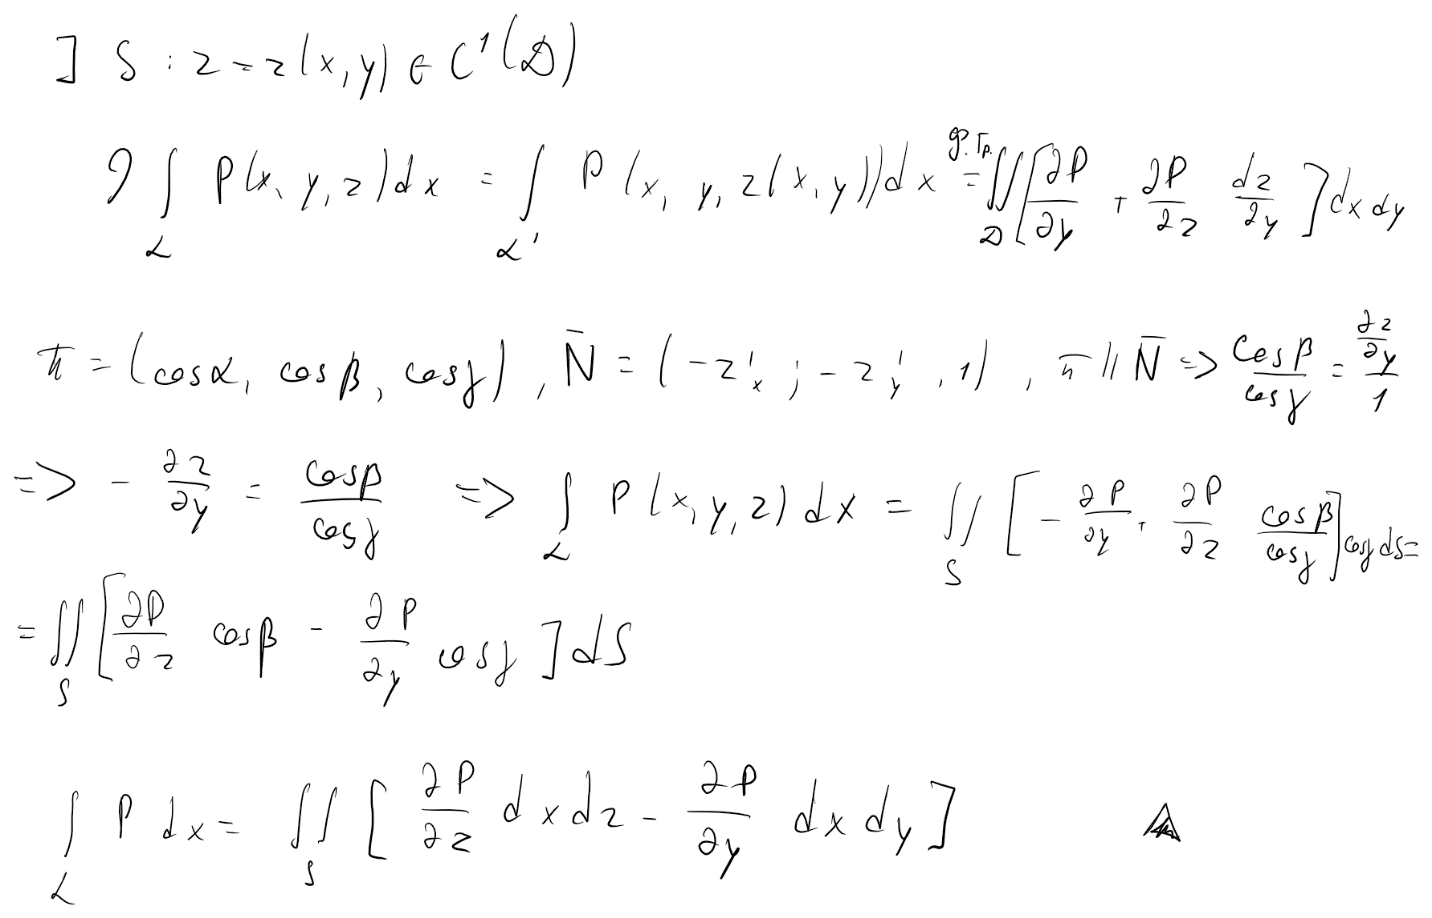 ] S : z = z(x, y) ∈ C¹(D)
∫_L P(x, y, z)dx = ∫_L' P(x, y, z(x, y))dx =^{ф. Гр.} ∬_D [∂P/∂y + ∂P/∂z dz/∂y] dx dy
n̄ = (cosα, cosβ, cosγ), N̄ = (-z'_x ; -z'_y , 1), n̄ || N̄ => cosβ/cosγ = (∂z/∂y)/1
=> - ∂z/∂y = cosβ/cosγ => ∫_L P(x, y, z)dx = ∬_S [- ∂P/∂y + ∂P/∂z cosβ/cosγ] cosγ dS =
= ∬_S [∂P/∂z cosβ - ∂P/∂y cosγ] dS
∫_L P dx = ∬_S [∂P/∂z dx dz - ∂P/∂y dx dy]